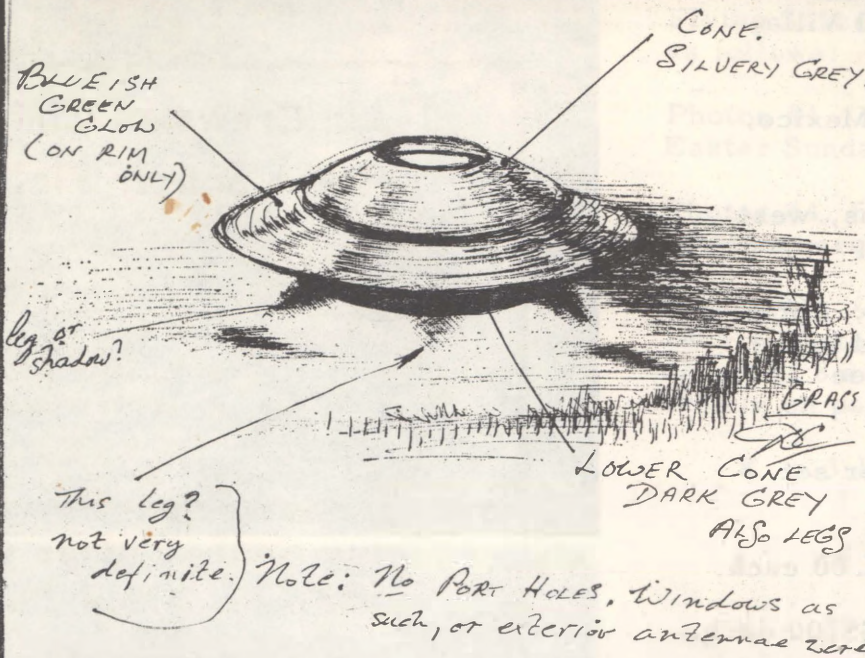 CONE.
SILVERY GREY.
BLUEISH
GREEN
GLOW
(ON RIM
ONLY)
leg or
shadow?
GRASS
LOWER CONE
DARK GREY
ALSO LEGS
This leg?
not very
definite.
Note: No PORT HOLES. Windows as
such, or exterior antennae were
Mexico.